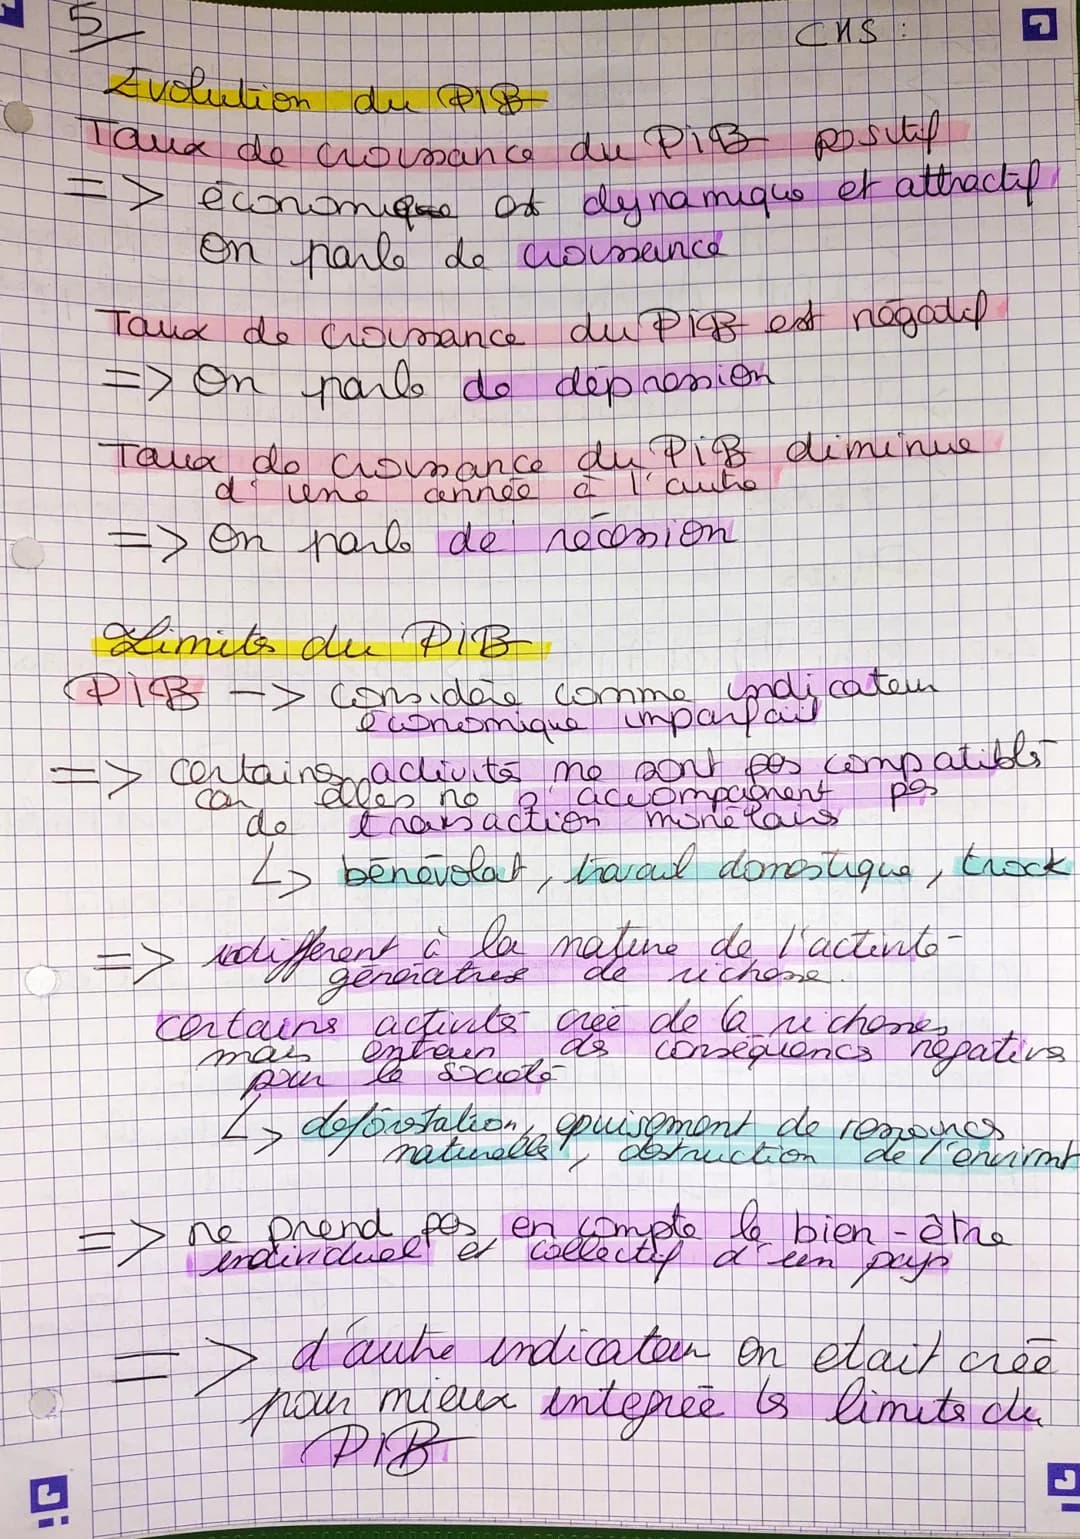 5/
CMS :
Evolution du PIB
Taux de croissance du PiB positif
=> économique est dynamique et attractif
On parle de croissance
Taux de croissance du PiB est négatif
=> On parle de dépression
Taux de croissance du PiB diminue
d'une année à l'autre
=> On parle de récession
Limites du PiB
PIB -> considéré comme indicateur
économique imparfait
=> certaines activités ne sont pas compatibles
car elles ne s'accompagnent pas
de transaction monétaires
↳ bénévolat, travail domestique, trock
=> indifférent à la nature de l'activité
génératrice de richesse.
certains activités crée de la richesses
mais entrain des conséquences négatives
pour la société
↳ deforestation, epuisement de ressources
naturelles, destruction de l'envirnt
=> ne prend pas en compte le bien-être
individuel et collectif d'un pays
=> d'autre indicateur on etait créé
pour mieux integrée les limites du
PIB